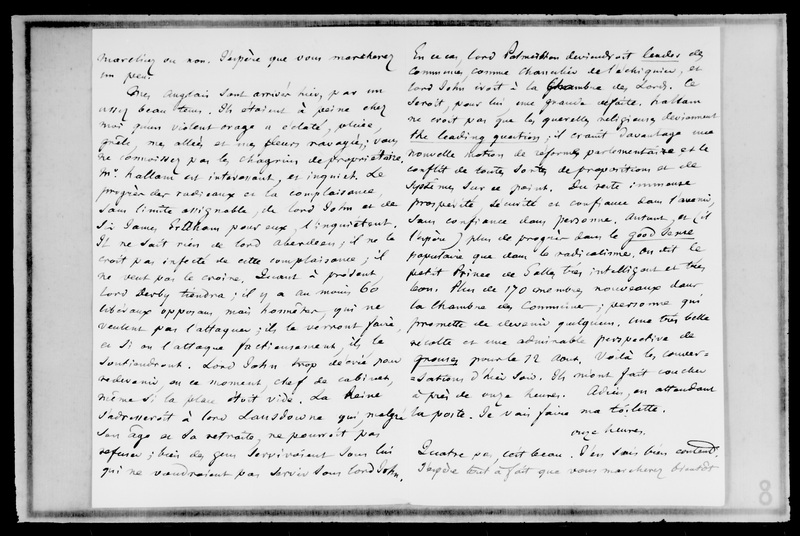 marchiez ou non. J'espère que vous marcherez
un peu.
Mes anglais sont arrivés hier, par un
assez beau tems. Ils étaient à peine chez
moi qu'un violent orage a éclaté, pluie,
grêle, mes allées et mes fleurs ravagées; vous
ne connoissez pas les chagrins de propriétaire.
Mr. hallam est intéressant, et inquiet. Le
progrès des radicaux et la complaisance,
sans limite assignable, de lord John et de
Sir James Graham pour eux, l'inquiètent.
Il ne sait rien de lord aberdeen; il ne le
croit pas infecté de cette complaisance; il
ne veut pas le croire. Quant à présent,
lord Derby tiendra; il y a au moins 60
libéraux opposans mais honnêtes, qui ne
veulent pas l'attaquer; ils le verront faire,
et si on l'attaque factieusement, ils le
soutiendront. Lord John trop décrié pour
redevenir, en ce moment, chef de cabinet,
même si la place étoit vide. La Reine
s'adresseroit à lord Lansdowne qui, malgré
son âge et sa retraite, ne pourroit pas
refuser; bien des gens serviroient sous lui
qui ne voudroient pas servir sous lord John.
En ce cas, lord Palmerston deviendroit leader des
communes, comme chancelier de l'échiquier, et
lord John iroit à la Chambre des Lords. Ce
seroit, pour lui une grande défaite. hallam
ne croit pas que les querelles religieuses deviennent
the leading question; il craint davantage une
nouvelle motion de réforme parlementaire et le
conflit de toutes sortes de propositions et de
systèmes sur ce point. Du reste immense
prospérité, sécurité et confiance dans l'avenir,
sans confiance dans personne. Autant, et (il
l'espère) plus de progrès dans le good sense
populaire que dans le radicalisme. On dit le
petit Prince de Galles très intelligent et très
bon. Plus de 170 membres nouveaux dans
la Chambre des Communes; personne qui
promette de devenir quelqu'un. Une très belle
récolte et une admirable perspective de
grouses pour le 12 Aout. Voilà les conver=
=sations d'hier soir. Ils m'ont fait coucher
à près de onze heures. Adieu, en attendant
la poste. Je vais faire ma toilette.
onze heures.
Quatre pas, c'est beau. J'en suis bien content.
J'espère tout à fait que vous marcherez bientôt
8